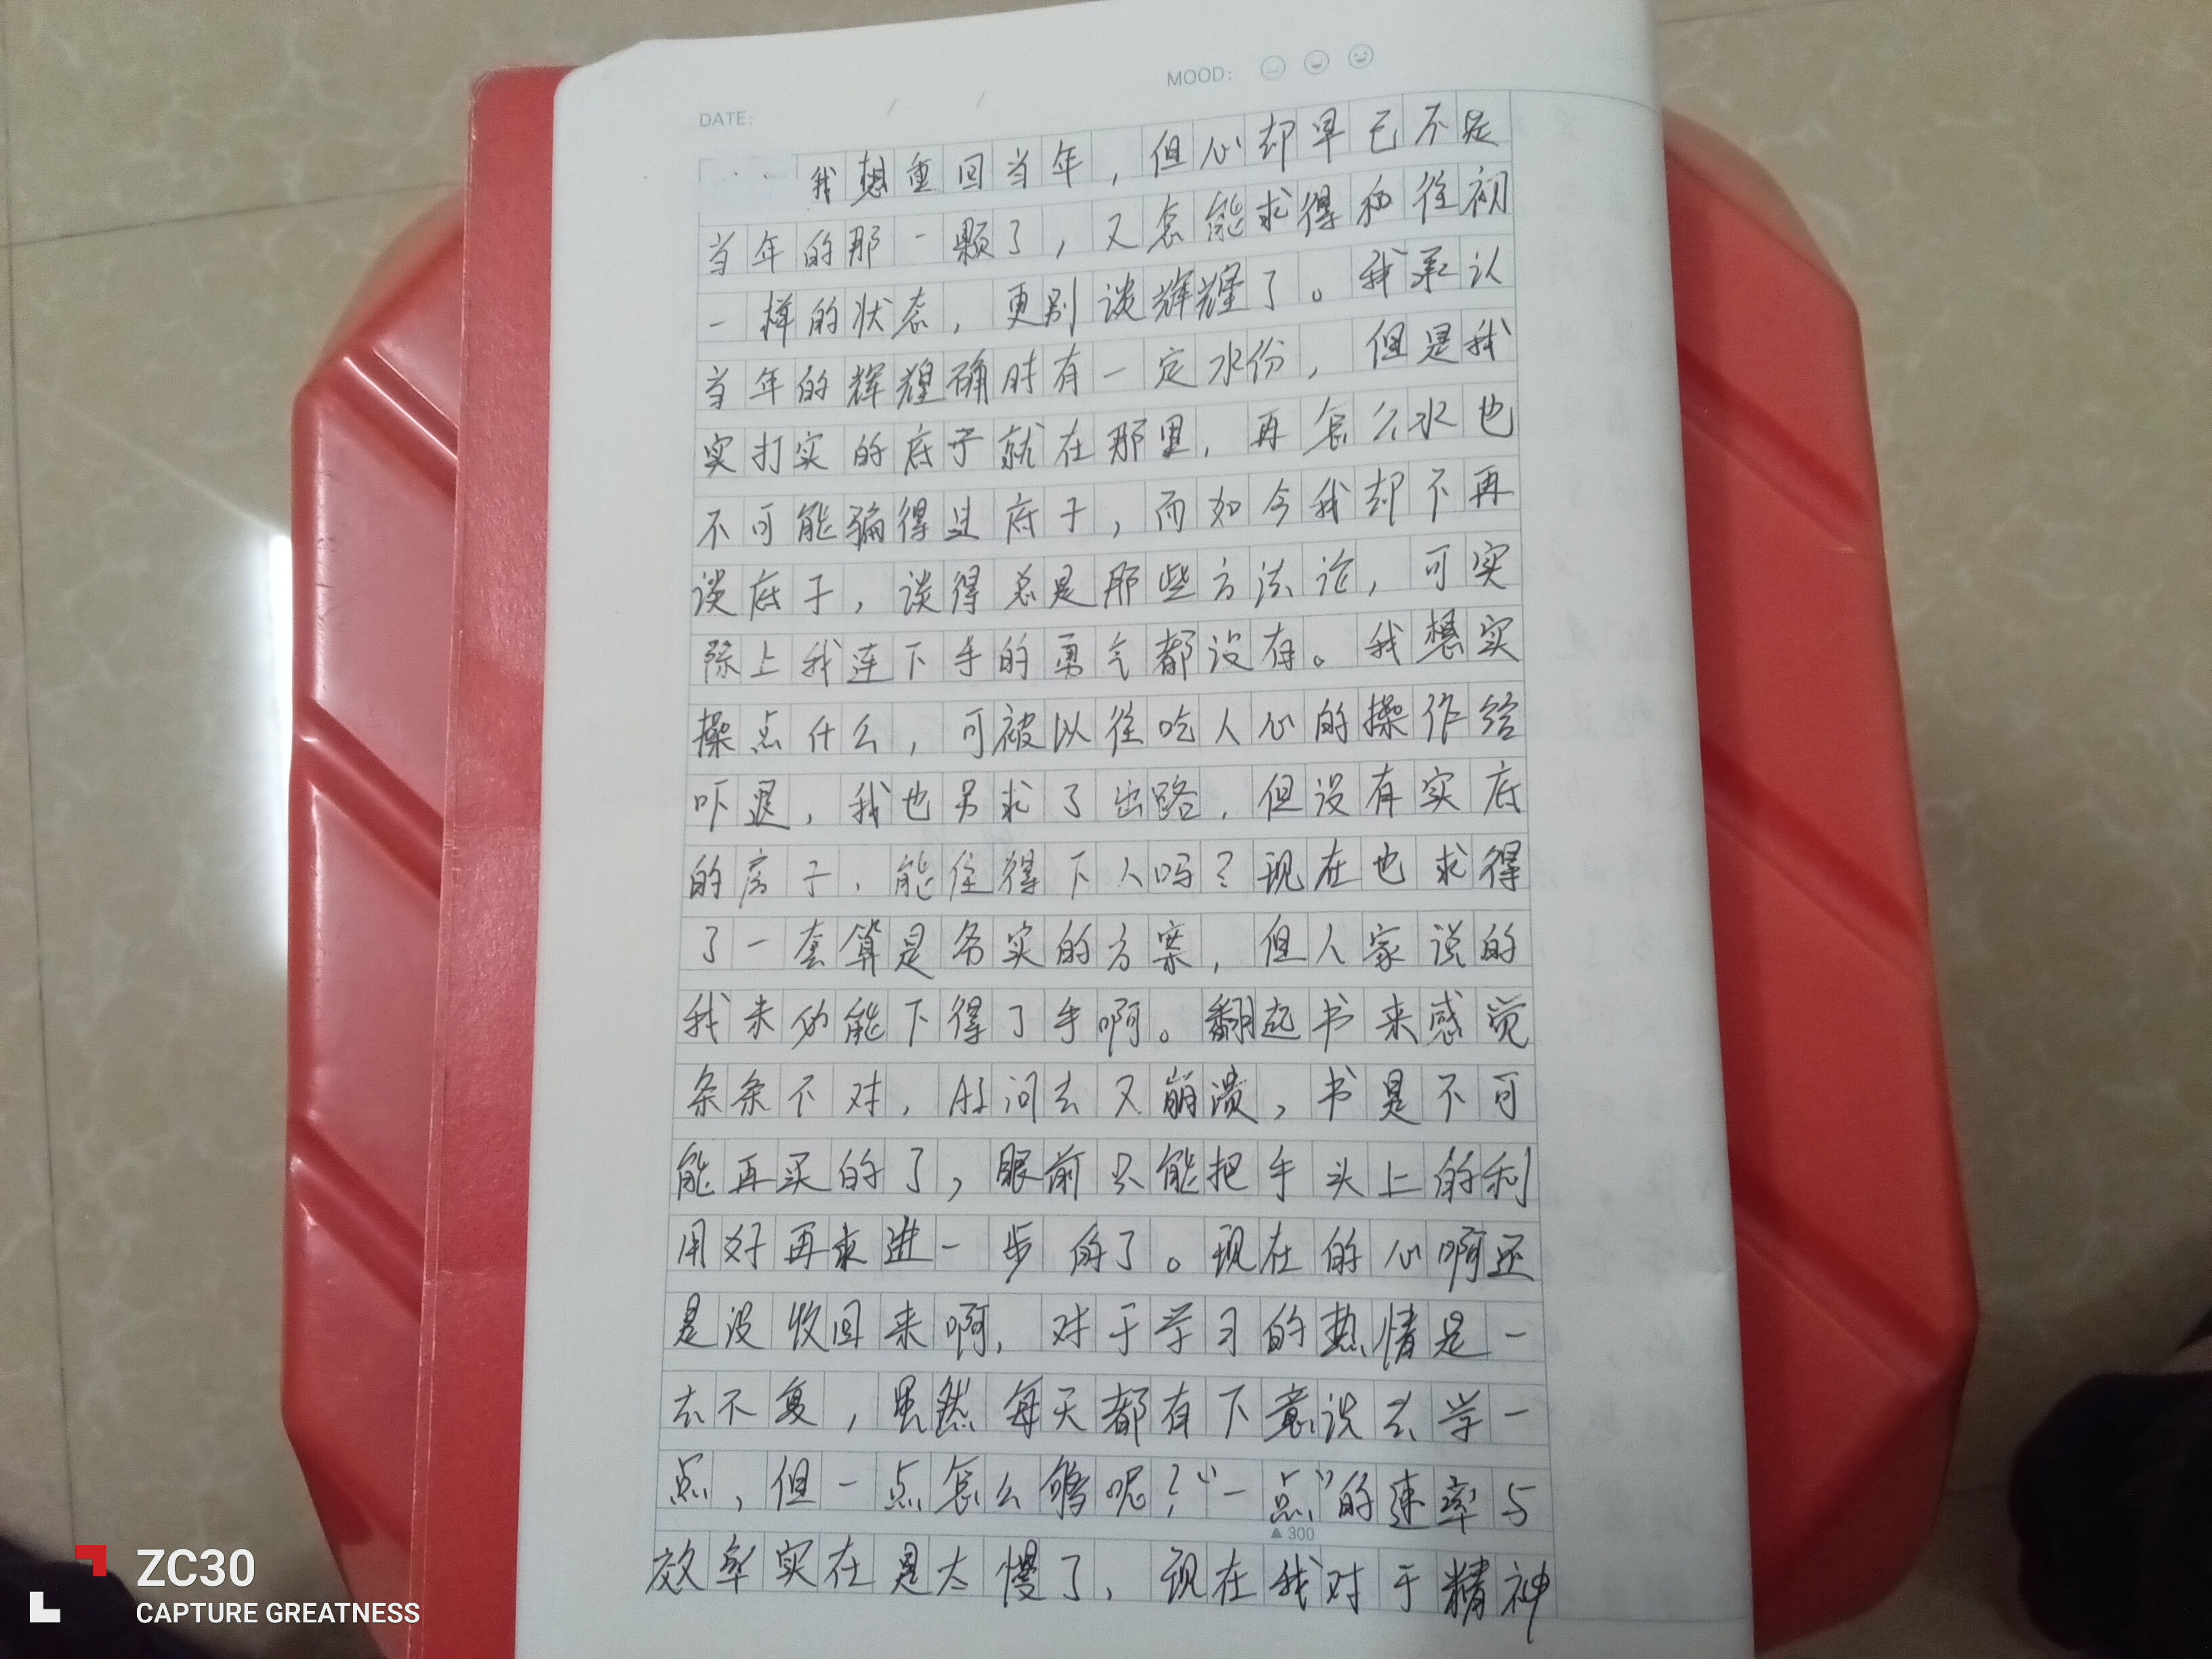 DATE: / /
MOOD:
我想重回当年，但心却早已不是
当年的那一颗了，又怎能求得和往初
一样的状态，更别谈辉煌了。我承认
当年的辉煌确时有一定水份，但是我
实打实的底子就在那里，再怎么水也
不可能骗得过底子，而如今我却不再
谈底子，谈得总是那些方法论，可实
际上我连下手的勇气都没有。我想实
操点什么，可被以往吃人心的操作给
吓退，我也另求了出路，但没有实底
的房子，能住得下人吗？现在也求得
了一套算是务实的方案，但人家说的
我未必能下得了手啊。翻起书来感觉
条条不对，AI问去又崩溃，书是不可
能再买的了，眼前只能把手头上的利
用好再来进一步的了。现在的心啊还
是没收回来啊，对于学习的热情是一
去不复，虽然每天都有下意识去学一
点，但一点怎么够呢？“一点”的速率与
▲300
效率实在是太慢了，现在我对于精神
ZC30
CAPTURE GREATNESS